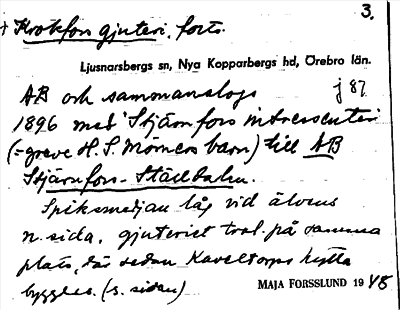 3.
+ Krokfors gjuteri, forts.
Ljusnarsbergs sn, Nya Kopparbergs hd, Örebro län.
AB och sammanslogs j 87
1896 med Stjärnfors intressenter
(= greve H. S. Mörners barn) till AB
Stjärnfors-Ställdalen.
Spiksmedjan låg vid älvens
n. sida, gjuteriet trol. på samma
plats, där sedan Kaveltorps hytta
byggdes. (s. sidan)
MAJA FORSSLUND 1948